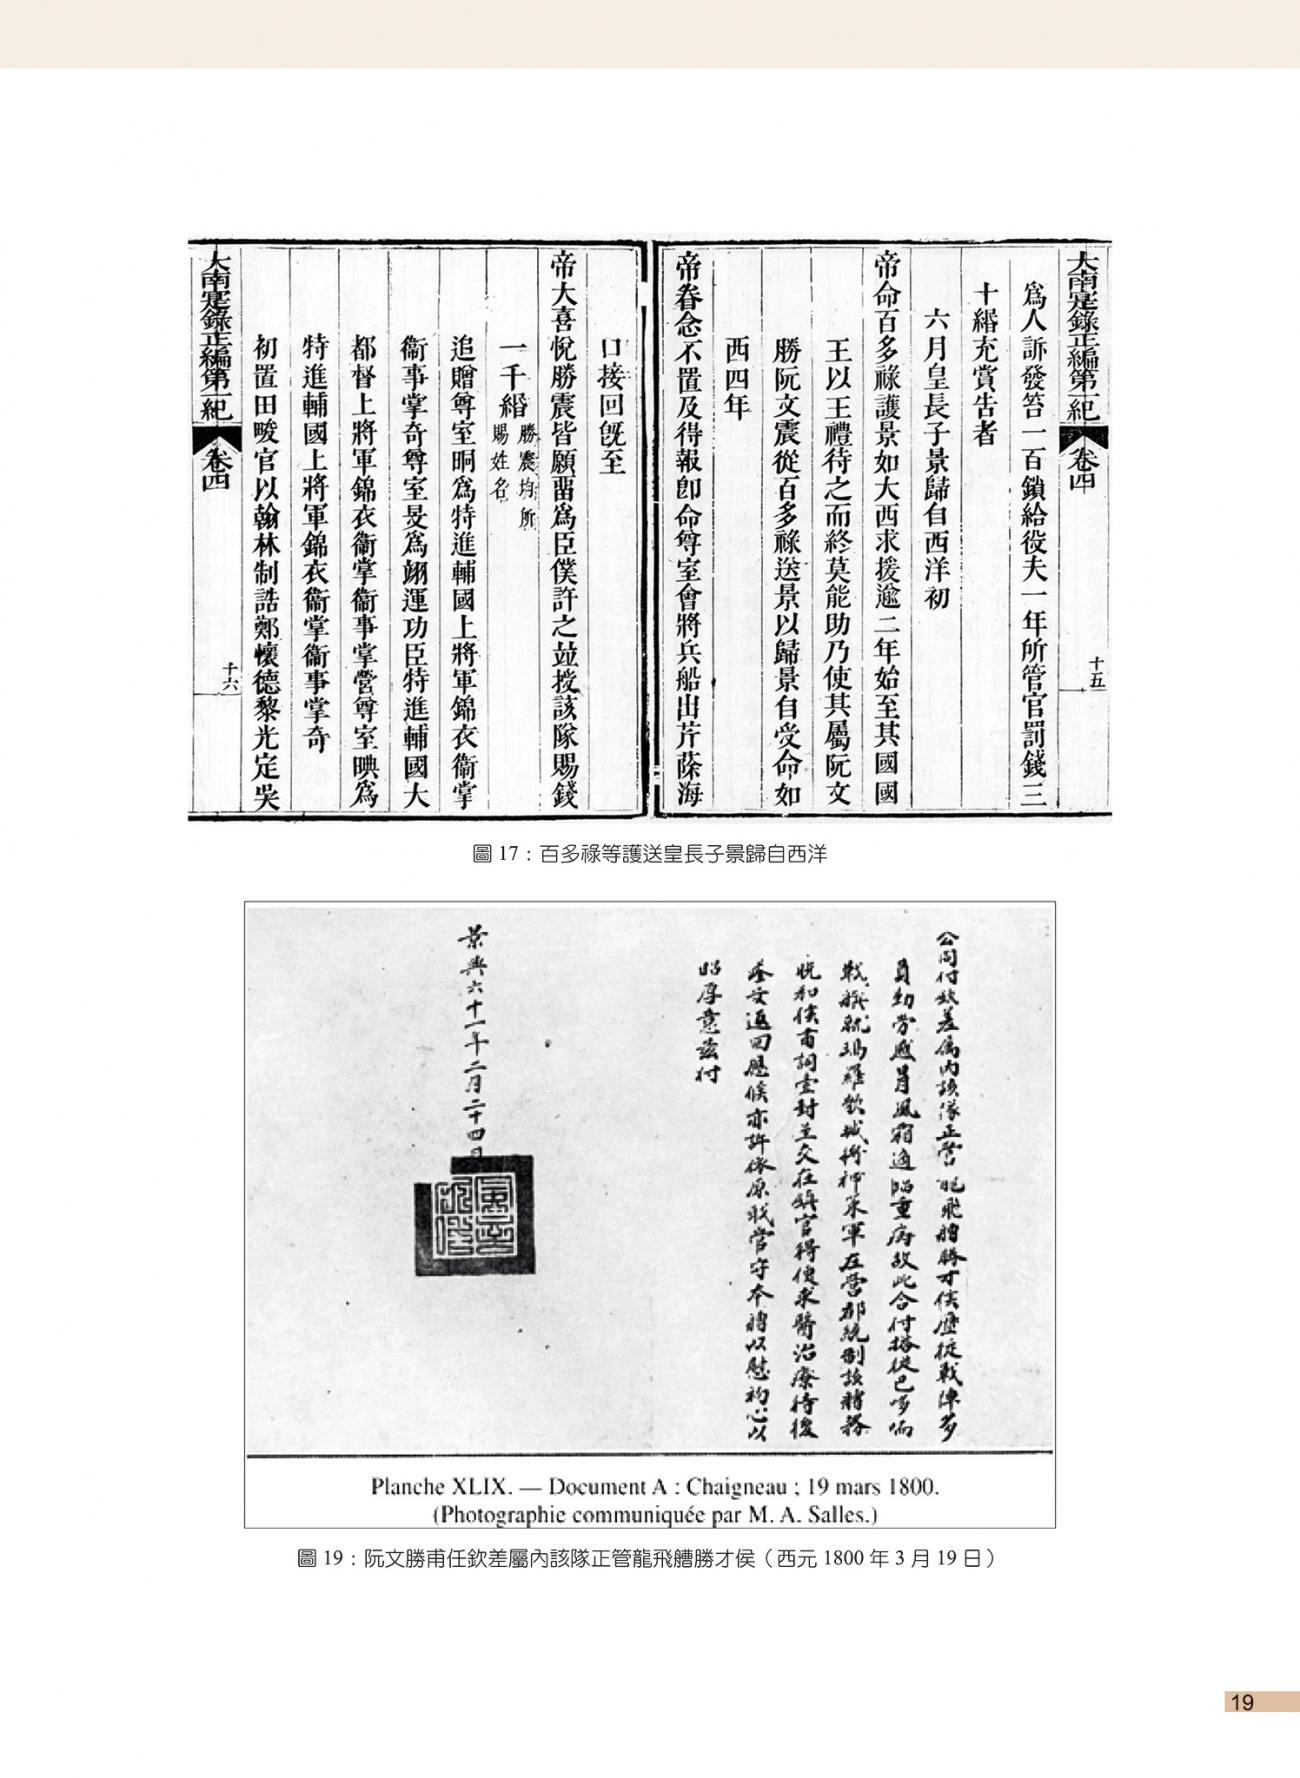 大南寔錄正編第一紀 卷四 十五
爲人訴發笞一百鎖給役夫一年所管官罰錢三
十緡充賞告者
六月皇長子景歸自西洋初
帝命百多祿護景如大西求援逾二年始至其國國
王以王禮待之而終莫能助乃使其屬阮文
勝阮文震從百多祿送景以歸景自受命如
西四年
帝眷念不置及得報卽命尊室會將兵船出芹蒢海
口接回旣至
帝大喜悅勝震皆願畱爲臣僕許之並授該隊賜錢
一千緡勝震均所賜姓名
追贈尊室晍爲特進輔國上將軍錦衣衞掌
衞事掌奇尊室旻爲翊運功臣特進輔國大
都督上將軍錦衣衞掌衞事掌營尊室㬇爲
特進輔國上將軍錦衣衞掌衞事掌奇
初置田畯官以翰林制誥鄭懷德黎光定吳
大南寔錄正編第一紀 卷四 十六
圖 17：百多祿等護送皇長子景歸自西洋
公同付欽差属内該隊正管 飛艚勝才侯歷從戰陣多
員劬勞感冒風霜適 重病故此合付搭從巴哆
戰艚就瑪羅 城 神策軍左營都統制該艚務
悅和侯 詞壹封並交在鎮官得使求醫治療待後
痊安返回 候亦許依原戝管守本艚以慰初心以
昭厚意茲付
景興六十一年二月二十四日
Planche XLIX. — Document A : Chaigneau ; 19 mars 1800.
(Photographie communiquée par M. A. Salles.)
圖 19：阮文勝甫任欽差屬內該隊正管龍飛艚勝才侯（西元 1800 年 3 月 19 日）
19